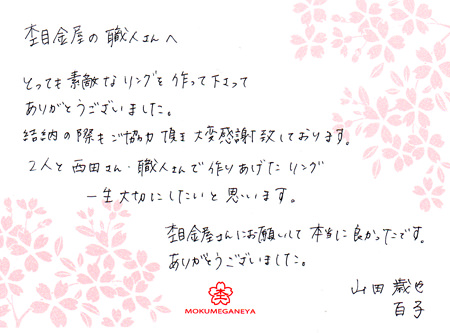 杢目金屋の職人さんへ
とっても素敵なリングを作って下さって
ありがとうございました。
結納の際もご協力頂き大変感謝致しております。
2人と西田さん・職人さんで作りあげたリング
一生大切にしたいと思います。
杢目金屋さんにお願いして本当に良かったです。
ありがとうございました。
山田
百子
MOKUMEGANEYA